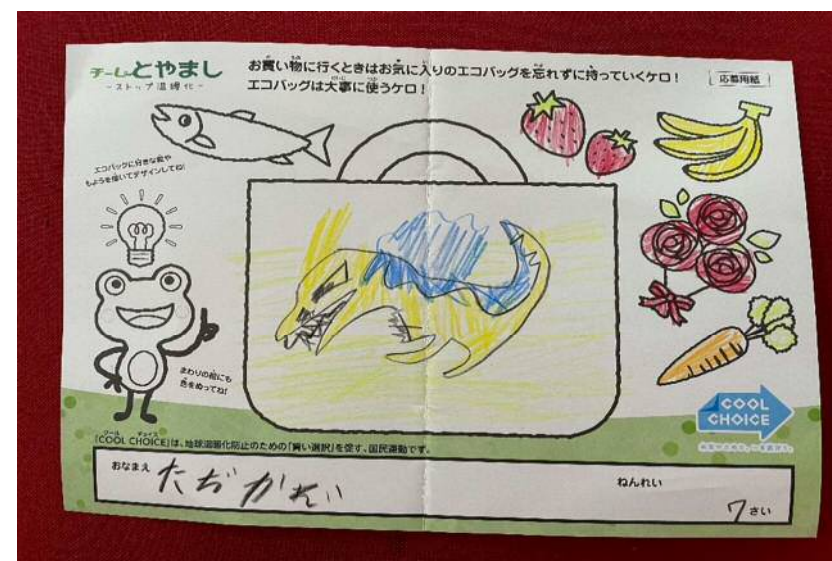 チームとやまし
-ストップ温暖化-
お買い物に行くときはお気に入りのエコバッグを忘れずに持っていくケロ！
エコバッグは大事に使うケロ！
応募用紙
エコバッグに好きな絵や
もようを描いてデザインしてね!
まわりの絵にも
色をぬってね!
COOL
CHOICE
「COOL CHOICE」は、地球温暖化防止のための「賢い選択」を促す、国民運動です。
おなまえ
ねんれい
7さい